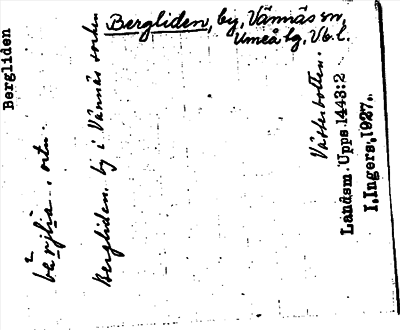 Bergliden
Bergliden, by, Vännäs sn,
Umeå tg, Vb. l.
ortn.
Bergliden, by i Vännäs socken
Västerbotten.
Landsm. Upps. 1443:2
I. Ingers, 1927.